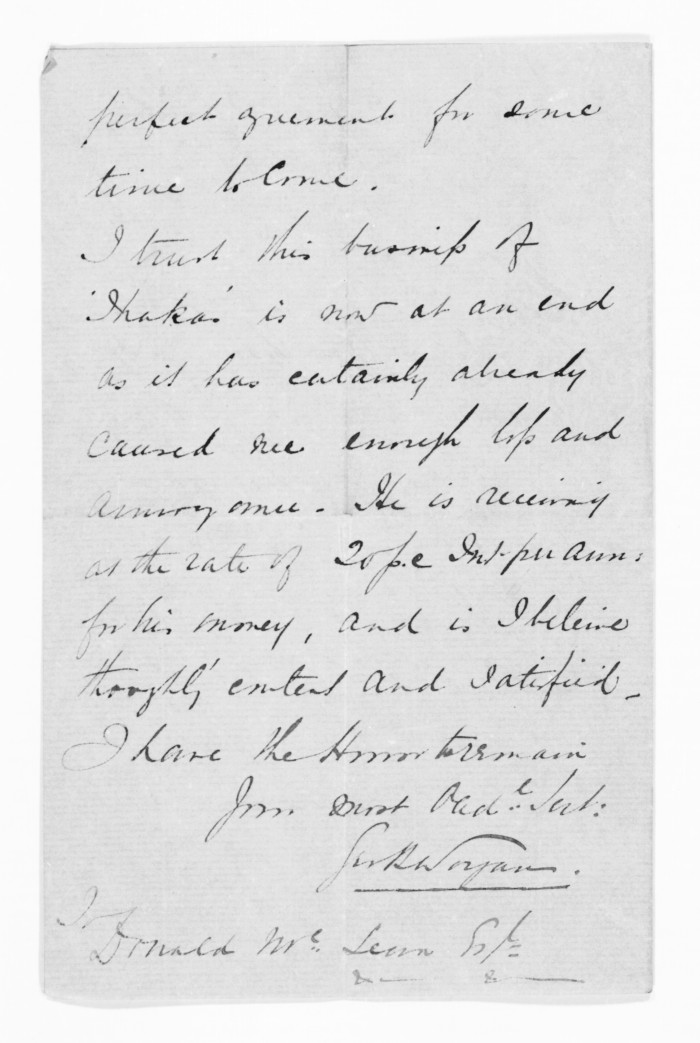 perfect agreement for some
time to Come.
I trust this business of
'Ihakas' is now at an end
as it has certainly already
Caused me enough loss and
annoyance - He is receiving
at the rate of 20 p.c Int. per ann:
for his money, and is I beleive
thoughly content and satisfied -
I have the Honor to remain
Your most Obed.t Servt:
Geo H Worgan.
To
Donald Mc. Lean Esq.
&c &c